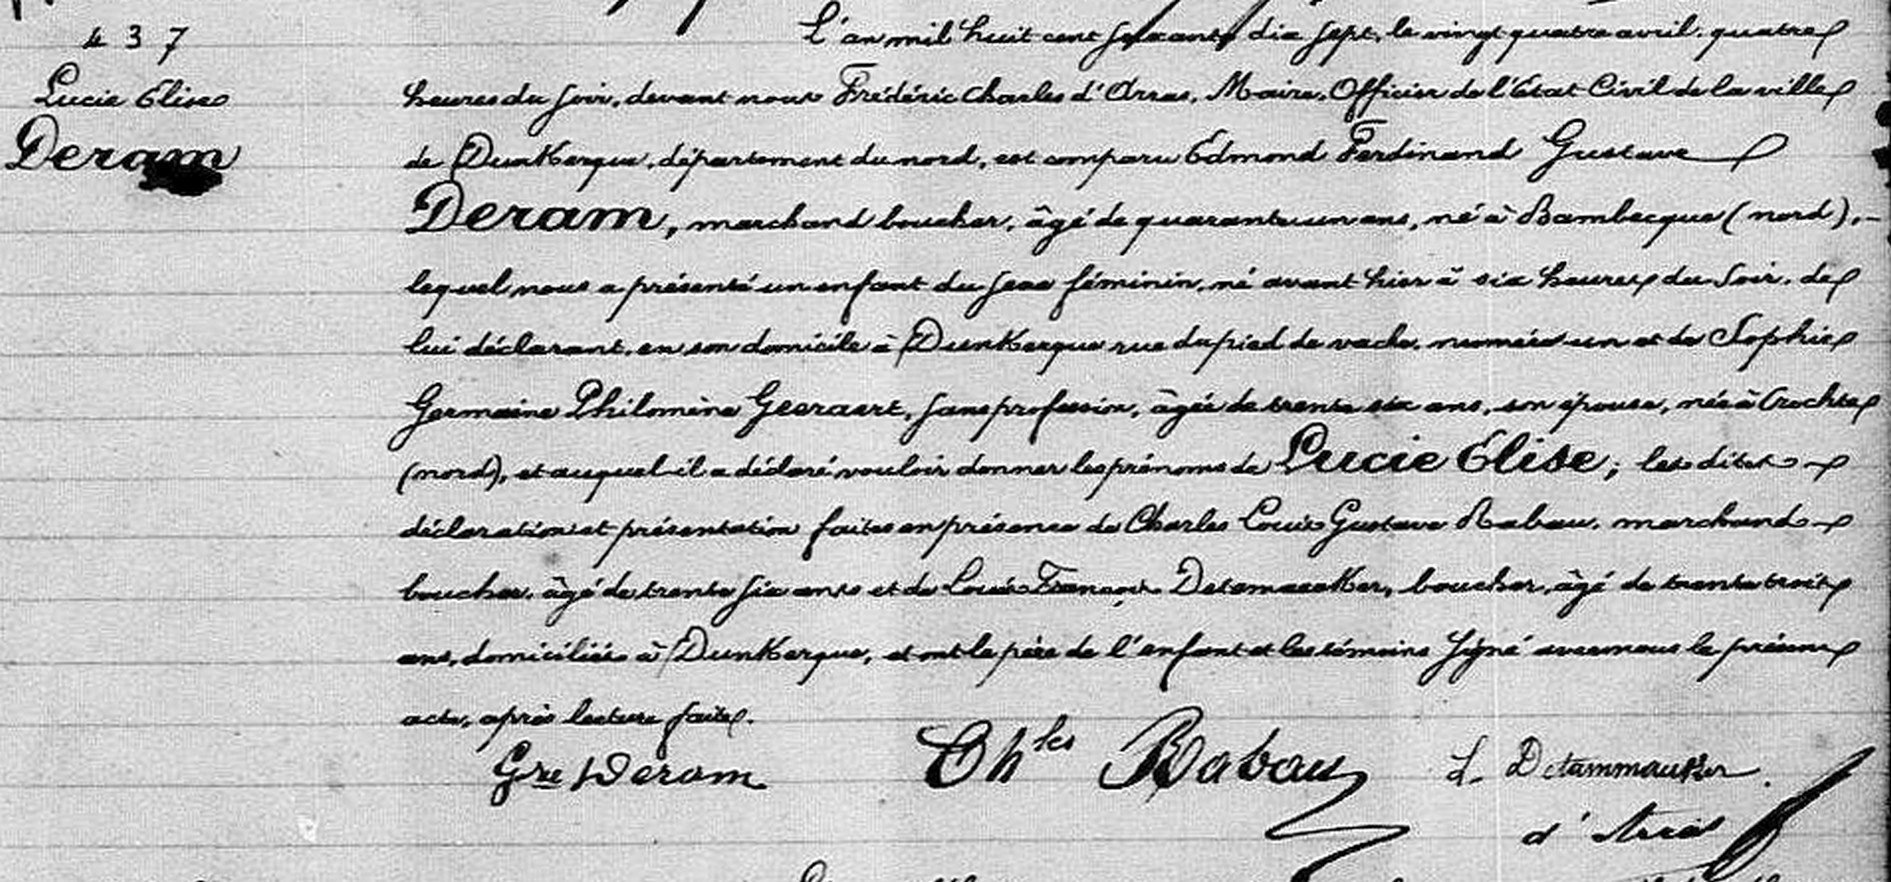 437
Lucie Elise
Deram
L'an mil huit cent soixante dix sept, le vingt quatre avril, quatre
heures du soir, devant nous Frédéric Charles d'Arras, Maire, Officier de l'Etat Civil de la ville
de Dunkerque, département du nord, est comparu Edmond Ferdinand Gustave
Deram, marchand boucher, âgé de quarante un ans, né à Bambecque (nord),
lequel nous a présenté un enfant du sexe féminin, né avant hier à six heures du soir, de
lui déclarant, en son domicile à Dunkerque rue du pied de vache, numéro un et de Sophie
Germaine Philomène Geeraert, sans profession, âgée de trente six ans, son épouse, née à Crochte
(nord), et auquel il a déclaré vouloir donner les prénoms de Lucie Elise; les dites
déclaration et présentation faites en présence de Charles Louis Gustave Rabau, marchand
boucher, âgé de trente six ans et de Louis François Detamaecker, boucher, âgé de trente trois
ans, domiciliés à Dunkerque, et ont le père de l'enfant et les témoins signé avec nous le présent
acte, après lecture faite.
Gve Deram Chles Rabau L. Detammaecker
d'Arras